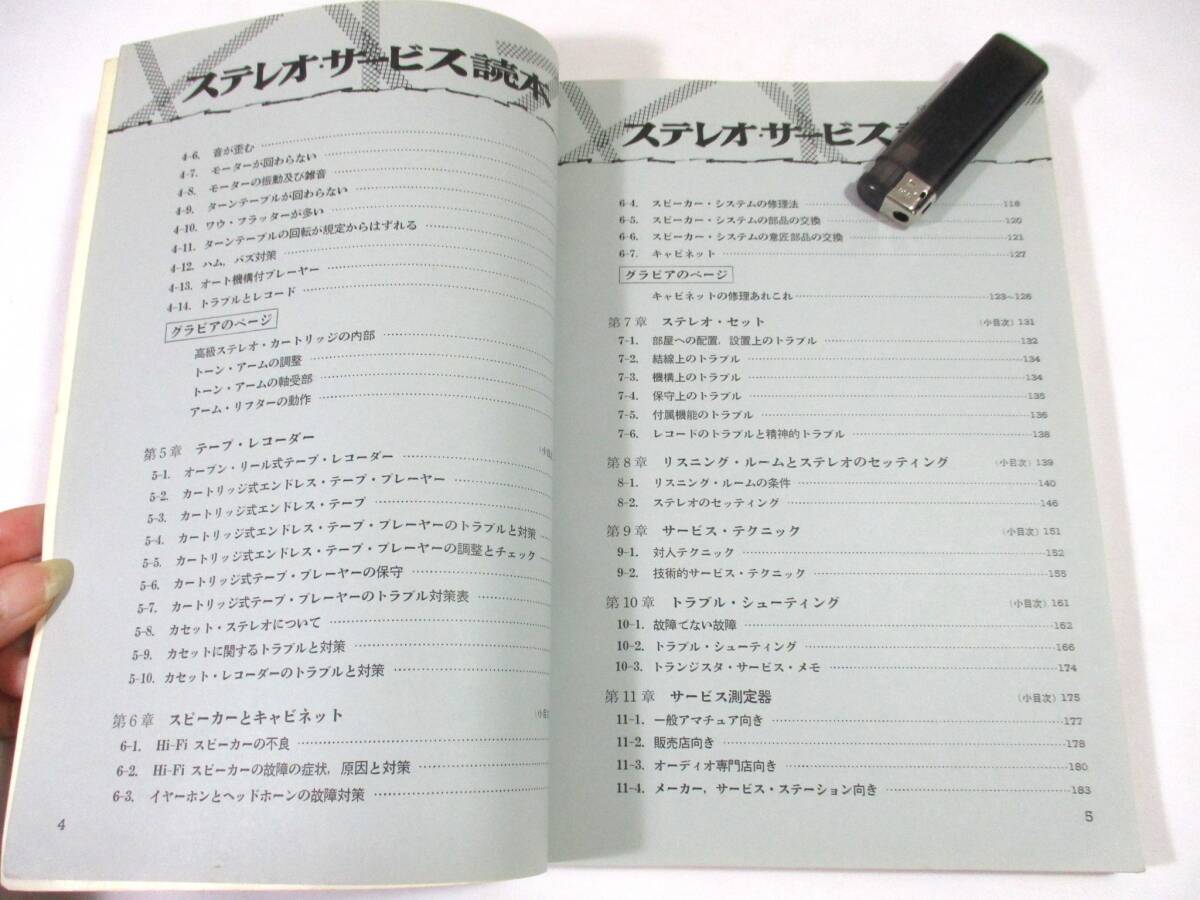 ステレオ・サービス読本
4-6. 音が歪む
4-7. モーターが回わらない
4-8. モーターの振動及び雑音
4-9. ターンテーブルが回わらない
4-10. ワウ・フラッターが多い
4-11. ターンテーブルの回転が規定からはずれる
4-12. ハム，バズ対策
4-13. オート機構付プレーヤー
4-14. トラブルとレコード
グラビアのページ
高級ステレオ・カートリッジの内部
トーン・アームの調整
トーン・アームの軸受部
アーム・リフターの動作
第5章 テープ・レコーダー (小目
5-1. オープン・リール式テープ・レコーダー
5-2. カートリッジ式エンドレス・テープ・プレーヤー
5-3. カートリッジ式エンドレス・テープ
5-4. カートリッジ式エンドレス・テープ・プレーヤーのトラブルと対策
5-5. カートリッジ式エンドレス・テープ・プレーヤーの調整とチェック
5-6. カートリッジ式テープ・プレーヤーの保守
5-7. カートリッジ式テープ・プレーヤーのトラブル対策表
5-8. カセット・ステレオについて
5-9. カセットに関するトラブルと対策
5-10. カセット・レコーダーのトラブルと対策
第6章 スピーカーとキャビネット (小目
6-1. Hi-Fi スピーカーの不良
6-2. Hi-Fi スピーカーの故障の症状，原因と対策
6-3. イヤーホンとヘッドホーンの故障対策
4
ステレオ・サービス
6-4. スピーカー・システムの修理法 118
6-5. スピーカー・システムの部品の交換 120
6-6. スピーカー・システムの意匠部品の交換 121
6-7. キャビネット 127
グラビアのページ
キャビネットの修理あれこれ 123～126
第7章 ステレオ・セット (小目次) 131
7-1. 部屋への配置，設置上のトラブル 132
7-2. 結線上のトラブル 134
7-3. 機構上のトラブル 134
7-4. 保守上のトラブル 135
7-5. 付属機能のトラブル 136
7-6. レコードのトラブルと精神的トラブル 138
第8章 リスニング・ルームとステレオのセッティング (小目次) 139
8-1. リスニング・ルームの条件 140
8-2. ステレオのセッティング 146
第9章 サービス・テクニック (小目次) 151
9-1. 対人テクニック 152
9-2. 技術的サービス・テクニック 155
第10章 トラブル・シューティング (小目次) 161
10-1. 故障でない故障 162
10-2. トラブル・シューティング 166
10-3. トランジスタ・サービス・メモ 174
第11章 サービス測定器 (小目次) 175
11-1. 一般アマチュア向き 177
11-2. 販売店向き 178
11-3. オーディオ専門店向き 180
11-4. メーカー，サービス・ステーション向き 183
5